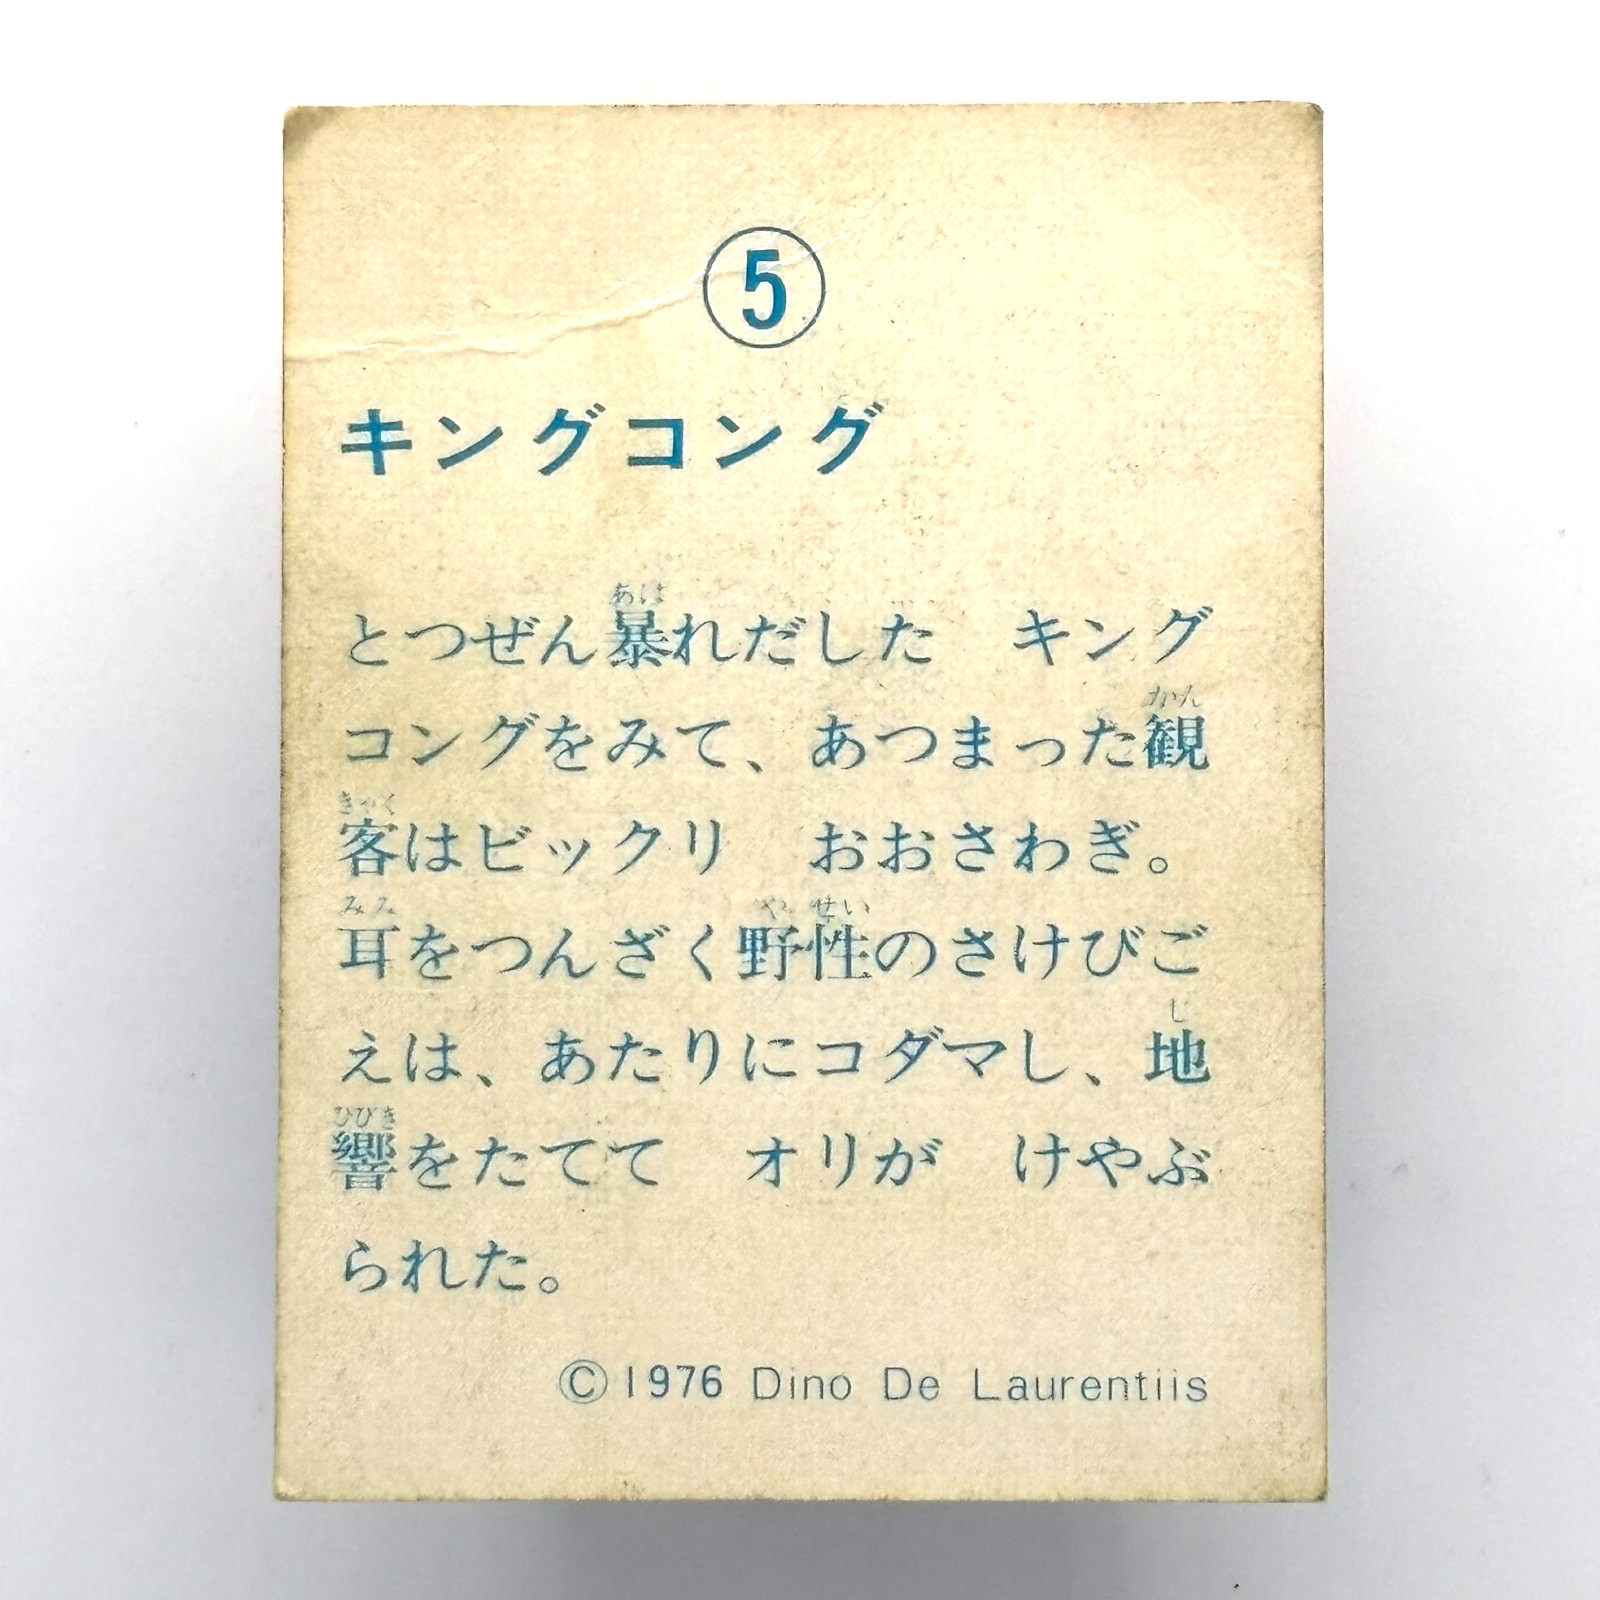 5
キングコング
とつぜん暴れだした　キング
コングをみて、あつまった観
客はビックリ　おおさわぎ。
耳をつんざく野性のさけびご
えは、あたりにコダマし、地
響をたてて　オリが　けやぶ
られた。
©1976 Dino De Laurentiis